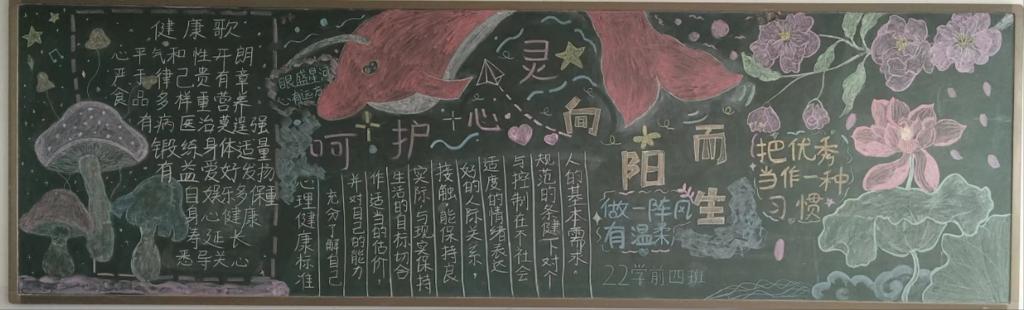 健康歌
心平气和性开朗
严于律己贵有幸
食品多样重营养
有病医治莫逞强
锻练身体适量
有益爱好多发扬
呵护心灵
向阳而生
心理健康标准
充分了解自己
并对自己的能力
作适当的估价,
生活的目标切合
实际,与现实保持
接触,能保持良
好的人际关系,
适度的情绪表达
与控制在不社会
规范的条健下对个
人的基本需求。
做一阵风
有温柔
把优秀
当作一种
习惯
22学前四班